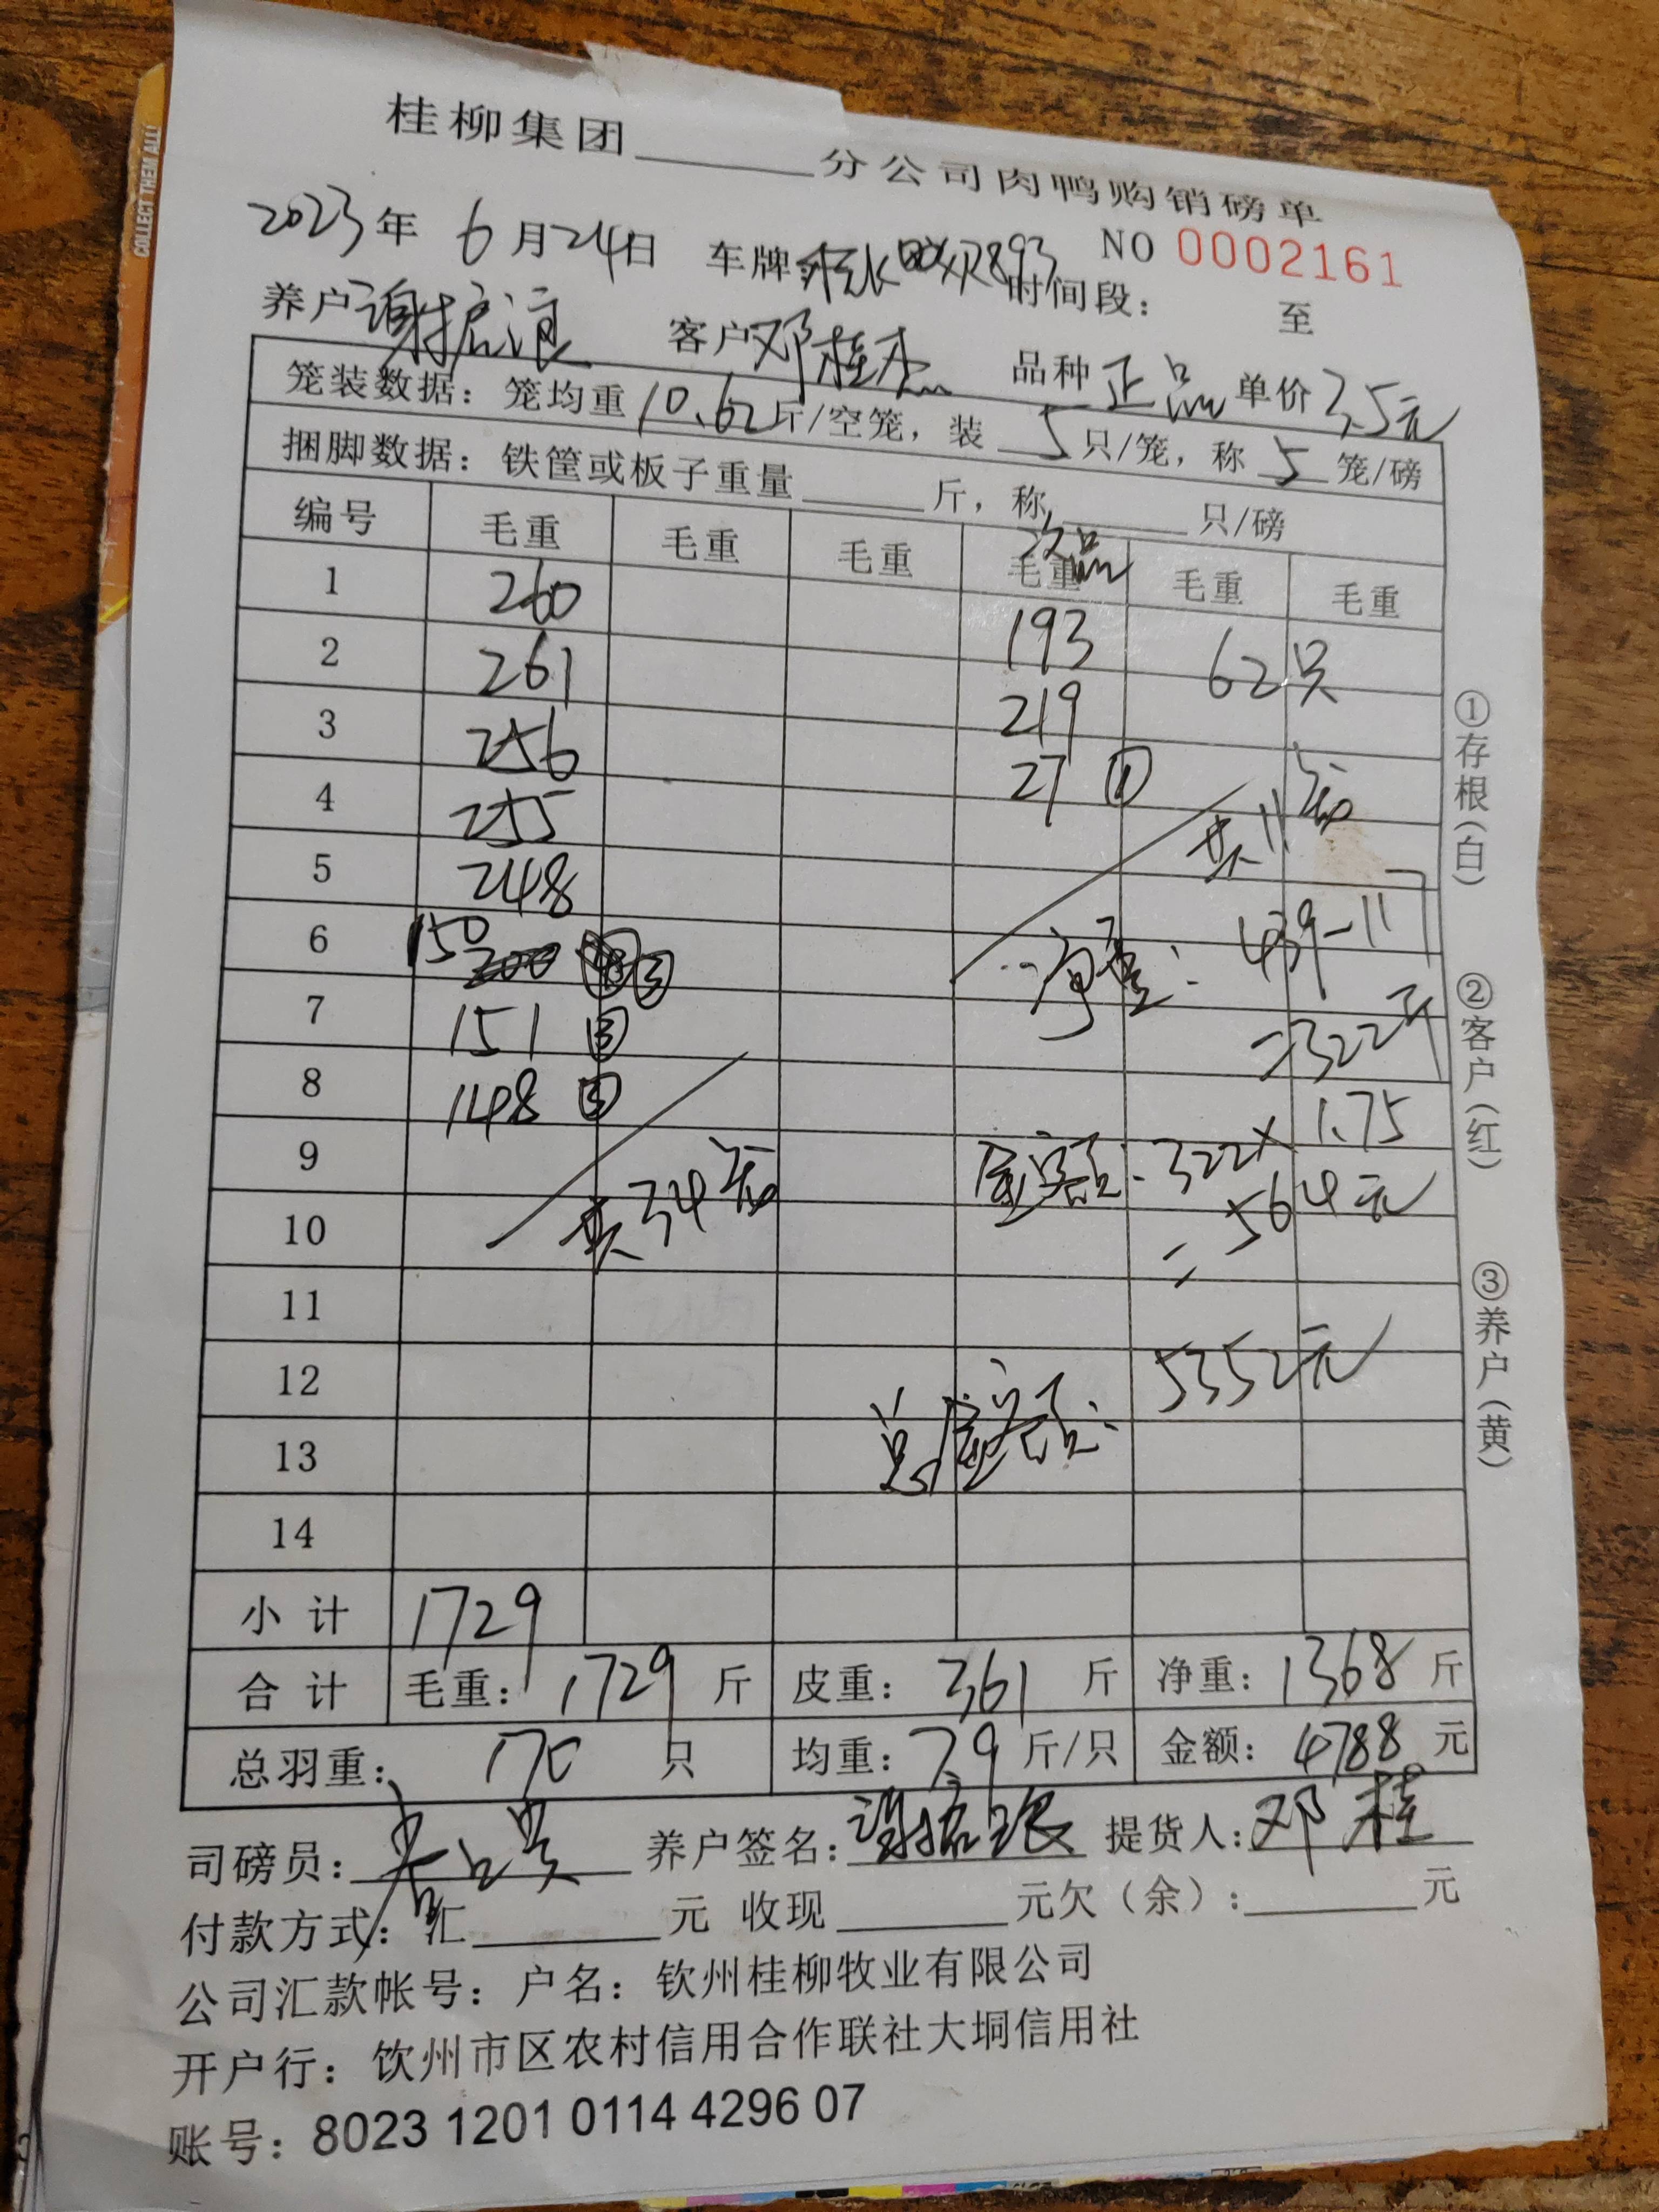 COLLECT THEM ALL!
桂柳集团______分公司肉鸭购销磅单
2023年 6月24日 车牌 893 NO 0002161
时间段: 至
养户谢振浪 客户邓桂杰 品种正品 单价3.5元
笼装数据:笼均重10.62斤/空笼,装 5 只/笼,称 5 笼/磅
捆脚数据:铁筐或板子重量______斤,称______只/磅
编号 毛重 毛重 毛重 毛重 次品 毛重 毛重
1 260 193 62只
2 261 219
3 256 27 ①
4 255 共11笼
5 248
6 150 200 ③ 净重: 439-117
7 151 ③ =322斤
8 148 ③
9 共34笼 金额: 322×1.75
10 =564元
11
12 总金额: 5352元
13
14
小计 1729
合计 毛重: 1729 斤 皮重: 361 斤 净重: 1368 斤
总羽重: 170 只 均重: 7.9 斤/只 金额: 4788 元
司磅员: 养户签名:谢振浪 提货人:邓桂
付款方式:汇______元 收现______元欠(余):______元
公司汇款帐号:户名:钦州桂柳牧业有限公司
开户行:钦州市区农村信用合作联社大垌信用社
账号:8023 1201 0114 4296 07
①存根(白)
②客户(红)
③养户(黄)